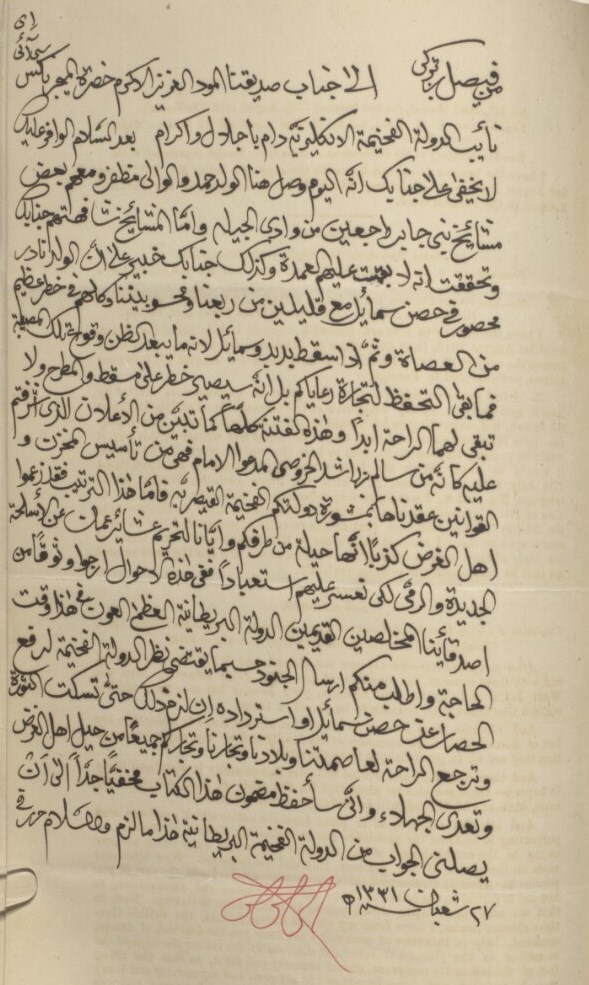 من فيصل بن تركي الى جناب صديقنا المود العزيز الاكرم حضرة الميجر ناكس
سي آئي
اي
نائب الدولة الفخيمة الانكليزية دام باجلال واكرام بعد السلام الوافر عليك
لا يخفى على جنابك انه اليوم وصل هنا الولد حمد والوالي مظفر ومعهم بعض
مشائخ بني جابر راجعين من وادي الجيله واما المشائخ فهمتهم جنابك
وتحققت انه لا عليهم العمدة وكذلك جنابك خبير على ان الولد نادر
محصور في حصن سمائل مع قليلين من ربعنا ومحسوبيتنا وكلهم في خطر عظيم
من العصاة وثم اذا سقط بدبد وسمائل لانه ما يبعد الظن وقوع تلك المصيبة
فما بقى التحفظ لتجارة رعاياكم بل انه سيصير خطر على مسقط والمطرح ولا
تبقى لهما الراحة ابداً وهذه الفتنة كلها كما تبين من الاعلان الذي اشرفتم
عليه كانه من سالم بن راشد الخروصي المدعوا الامام فهي من تأسيس المخزن و
القوانين عقدناها بمشورة دولتكم الفخيمة القيصرية فاما هذا الترتيب فقد زعموا
اهل الغرض كذباً انها حيلة من طرفكم وايانا لتحريم عشائر عمان عن الاسلحة
الجديدة والرمي لكي تعسر عليهم استعباداً ففي هذه الاحوال ارجوا وثوقاً من
اصدقائنا المخلصين القديمين الدولة البريطانية العظمى العون في هذا وقت
الحاجة واطلب منكم ارسال الجنود حسبما يقتضي نظر الدولة الفخيمة لرفع
الحصار عن حصن سمائل او استرداده ان لزم ذلك حتى تسكت الثورة
وترجع الراحة لعاصمتنا وبلادنا وتجارنا وتجاركم جميعاً من حيل اهل الغرض
وتعدي الجهلاء واني سأحفظ مضمون هذا الكتاب مخفياً جداً الى ان
يصلني الجواب من الدولة الفخيمة البريطانية هذا ما لزم والسلام حرر في
٢٧ شعبان سنه ١٣٣١ه